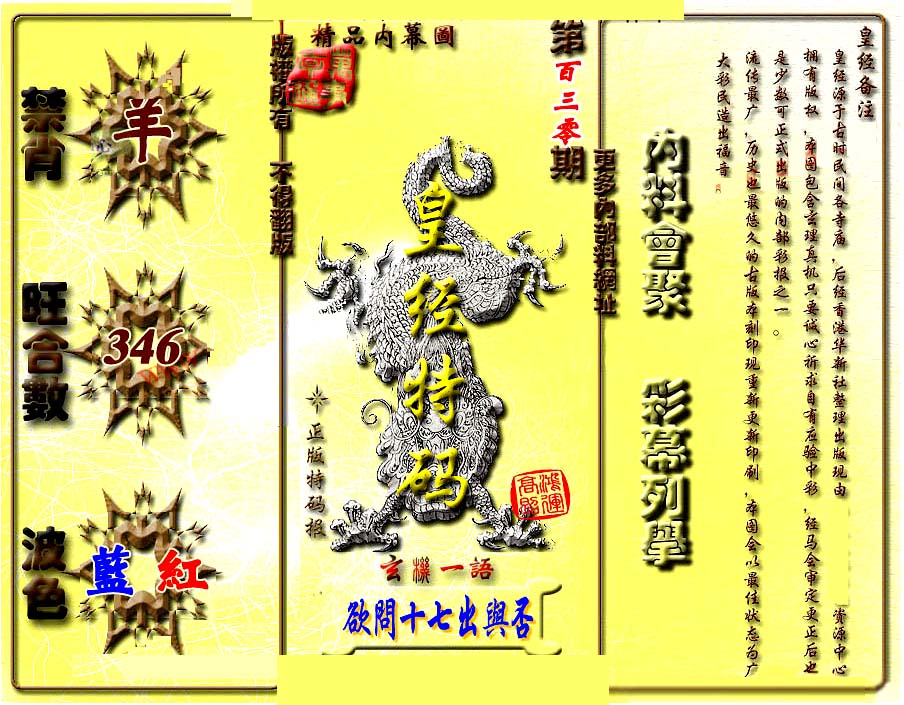 皇经备注
皇经源于古时民间各寺庙，后经香港华新社整理出版现由 资源中心
拥有版权，本图包含玄理真机只要诚心祈求自有应验中彩，经马会审定更正后也
是少数可正式出版的内部彩报之一。
流传最广，历史也最悠久的古版本刻印现重新更新印刷，本图会以最佳状态为广
大彩民造出福音
内料會聚
彩幕列舉
更多內部料網址
第百三零期
精品內幕圖
版權所有 不得翻版
皇经特码
正版特码报
鴻運
高照
玄機一語
欲問十七出與否
禁肖
羊
旺合數
346
波色
藍 紅